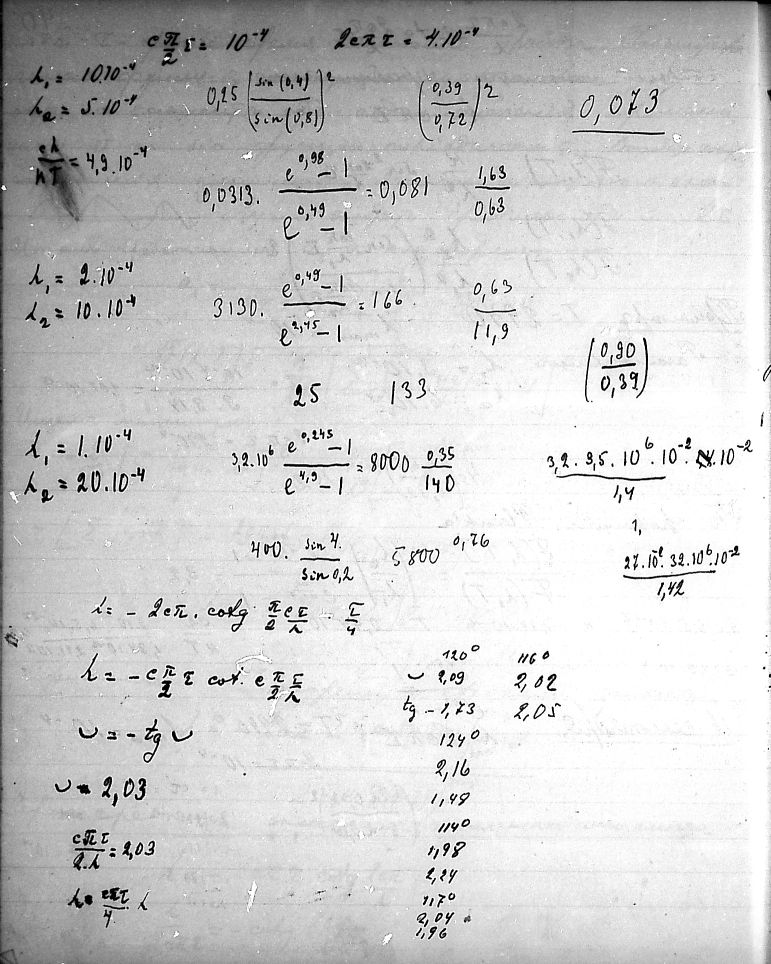 c π/2 τ = 10⁻⁴   2cπτ = 4.10⁻⁴
λ₁ = 10.10⁻⁴
λ₂ = 5.10⁻⁴   0,25 (sin(0,4)/sin(0,8))²   (0,39/0,72)²   0,073
ch/kT = 4,9.10⁻⁴
0,0313. (e^0,98 - 1)/(e^0,49 - 1) = 0,081   1,63/0,63
λ₁ = 2.10⁻⁴
λ₂ = 10.10⁻⁴   3130. (e^0,49 - 1)/(e^2,45 - 1) = 166   0,63/11,9
(0,90/0,39)
25   133
λ₁ = 1.10⁻⁴
λ₂ = 20.10⁻⁴   3,2.10⁶ (e^0,245 - 1)/(e^4,9 - 1) = 8000   0,35/140   3,2.3,5.10⁶.10⁻².10⁻²/1,4
1,
400. sin 4./sin 0,2   5800   0,76   27.10².32.10⁶.10⁻²/1,42
λ = - 2cπ. cotg π/2 cτ/λ - τ/4
λ = - c π/2 τ cot. c π/2 τ/λ
υ = - tg υ
υ = 2,03
cπτ/2.λ = 2,03
λ = cπτ/4 . λ
120°   116°
υ 2,09   2,02
tg - 1,73   2,05
124°
2,16
1,48
114°
1,98
2,24
117°
2,04
1,96